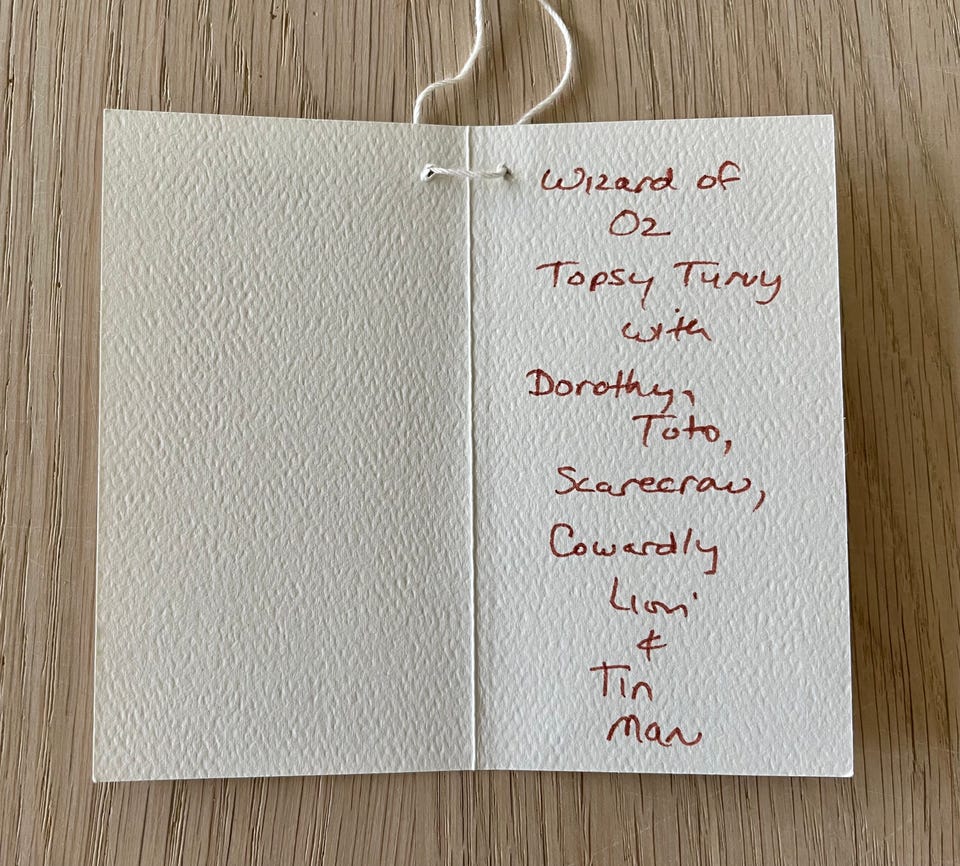 Wizard of
Oz
Topsy Turvy
with
Dorothy,
Toto,
Scarecrow,
Cowardly
Lion
&
Tin
Man